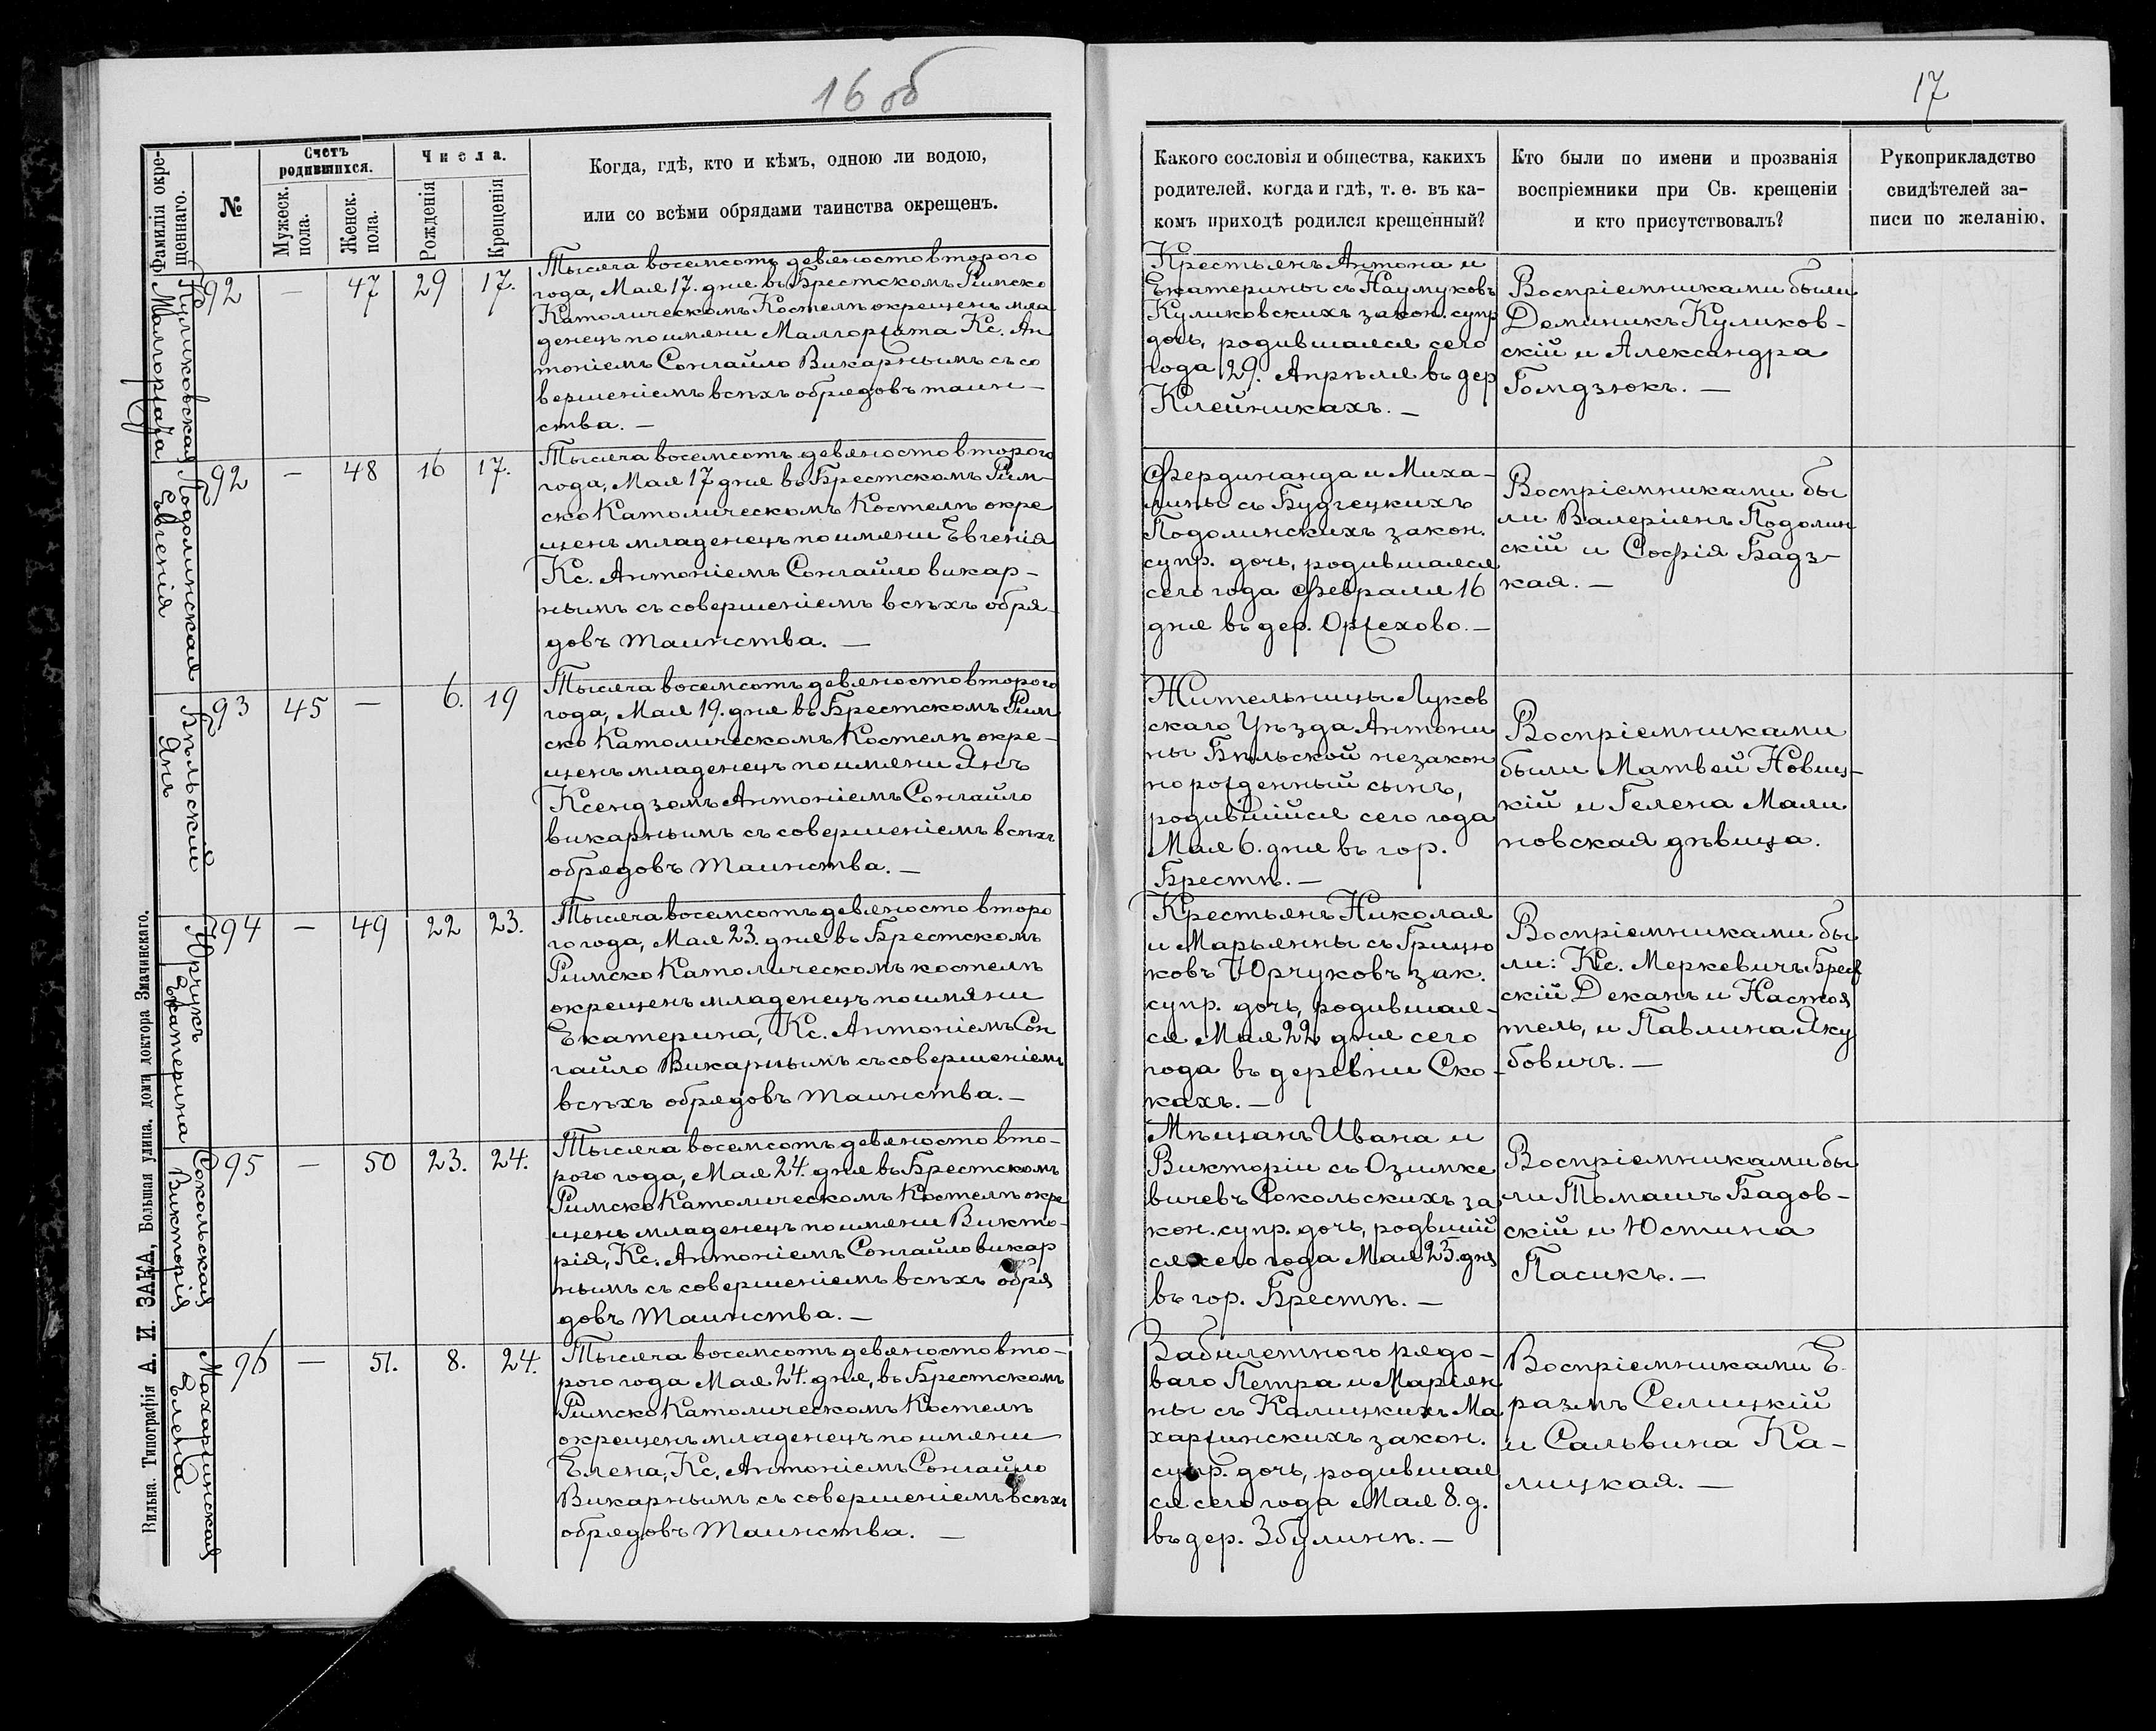 16 об
17
Фамилія окре-
щеннаго.
№
Счетъ
родившихся.
Мужеск.
пола.
Женск.
пола.
Числа.
Рожденія
Крещенія
Когда, гдѣ, кто и кѣмъ, одною ли водою,
или со всѣми обрядами таинства окрещенъ.
Какого сословія и общества, какихъ
родителей, когда и гдѣ, т. е. въ ка-
комъ приходѣ родился крещенный?
Кто были по имени и прозванія
воспріемники при Св. крещеніи
и кто присутствовалъ?
Рукоприкладство
свидѣтелей за-
писи по желанію.
Куликовская
Малгоржата
92 — 47 29 17.
Тысяча восемсотъ девяносто второго
года, Мая 17. дня въ Брестскомъ Римско
Католическомъ Костелѣ окрещенъ мла
денецъ по имяни Малгоржата Кс. Ан
тоніемъ Сонгайло Викарнымъ съ со
вершеніемъ всѣхъ обрядовъ таин-
ства. —
Крестьянъ Антона и
Екатерины съ Наумуковъ
Куликовскихъ закон. супр
дочь, родившаяся сего
года 29. Апрѣля въ дер
Клейникахъ. —
Воспріемниками были
Доминикъ Куликов-
скій и Александра
Гомдзюкъ. —
Подолинская
Евгенія
92 — 48 16 17.
Тысяча восемсотъ девяносто второго
года, Мая 17 дня въ Брестскомъ Рим-
ско Католическомъ Костелѣ окре
щенъ младенецъ по имяни Евгенія
Кс. Антоніемъ Сонгайло викар-
нымъ съ совершеніемъ всѣхъ обря-
довъ таинства. —
Фердинанда и Миха-
лины съ Будзецкихъ
Подолинскихъ закон.
супр. дочь, родившаяся
сего года Февраля 16
дня въ дер. Оржехово. —
Воспріемниками бы
ли Валеріянъ Подолин
скій и Софія Бадз-
кая. —
Бѣльскій
Янъ
93 45 — 6. 19
Тысяча восемсотъ девяносто второго
года, Мая 19. дня въ Брестскомъ Рим
ско Католическомъ Костелѣ окре-
щенъ младенецъ по имяни Янъ
Ксендзомъ Антоніемъ Сонгайло
викарнымъ съ совершеніемъ всѣхъ
обрядовъ таинства. —
Жительницы Луков
скаго Уѣзда Антони
ны Бѣльской незакон
но рожденный сынъ,
родившійся сего года
Мая 6. дня въ гор.
Брестѣ. —
Воспріемниками
были Матвей Новиц-
кій и Гелена Мали
новская дѣвица.
Юрчукъ
Екатерина
94 — 49 22 23.
Тысяча восемсотъ девяносто второ
го года, Мая 23. дня въ Брестскомъ
Римско Католическомъ костелѣ
окрещенъ младенецъ по имяни
Екатерина, Кс. Антоніемъ Сон
гайло Викарнымъ съ совершеніемъ
всѣхъ обрядовъ таинства. —
Крестьянъ Николая
и Марьянны съ Грицю
ковъ Юрчуковъ зак.
супр. дочь, родившая-
ся Мая 22 дня сего
года въ деревни Ско-
кахъ. —
Воспріемниками бы
ли: Кс. Меркевичъ Брест
скій Деканъ и Настоя
тель, и Павлина Яку
бовичъ. —
Сокольская
Викторія
95 — 50 23. 24.
Тысяча восемсотъ девяносто вто-
рого года, Мая 24. дня въ Брестскомъ
Римско Католическомъ Костелѣ окре
щенъ младенецъ по имяни Викто-
рія, Кс. Антоніемъ Сонгайло викар
нымъ съ совершеніемъ всѣхъ обря
довъ таинства. —
Мѣщанъ Ивана и
Викторіи съ Озимке
вичевъ Сокольскихъ за
кон. супр. дочь, родвший
ся сего года Мая 23. дня
въ гор. Брестѣ. —
Воспріемниками бы
ли Томашъ Бадов-
скій и Юстина
Пасикъ. —
Махаржинская
Елена
96 — 51. 8. 24.
Тысяча восемсотъ девяносто вто-
рого года Мая 24. дня, въ Брестскомъ
Римско Католическомъ Костелѣ
окрещенъ младенецъ по имяни
Елена, Кс. Антоніемъ Сонгайло
Викарнымъ съ совершеніемъ всѣхъ
обрядовъ таинства. —
Забилетного рядо-
ваго Петра и Маріян
ны съ Калицкихъ Ма
харжинскихъ закон.
супр. дочь, родившая
ся сего года Мая 8. д.
въ дер. Збулинѣ. —
Воспріемниками Е-
размъ Селицкій
и Сальвина Ка-
лицкая. —
Вильна. Типографія А. И. ЗАКА, Большая улица, домъ доктора Змачинскаго.